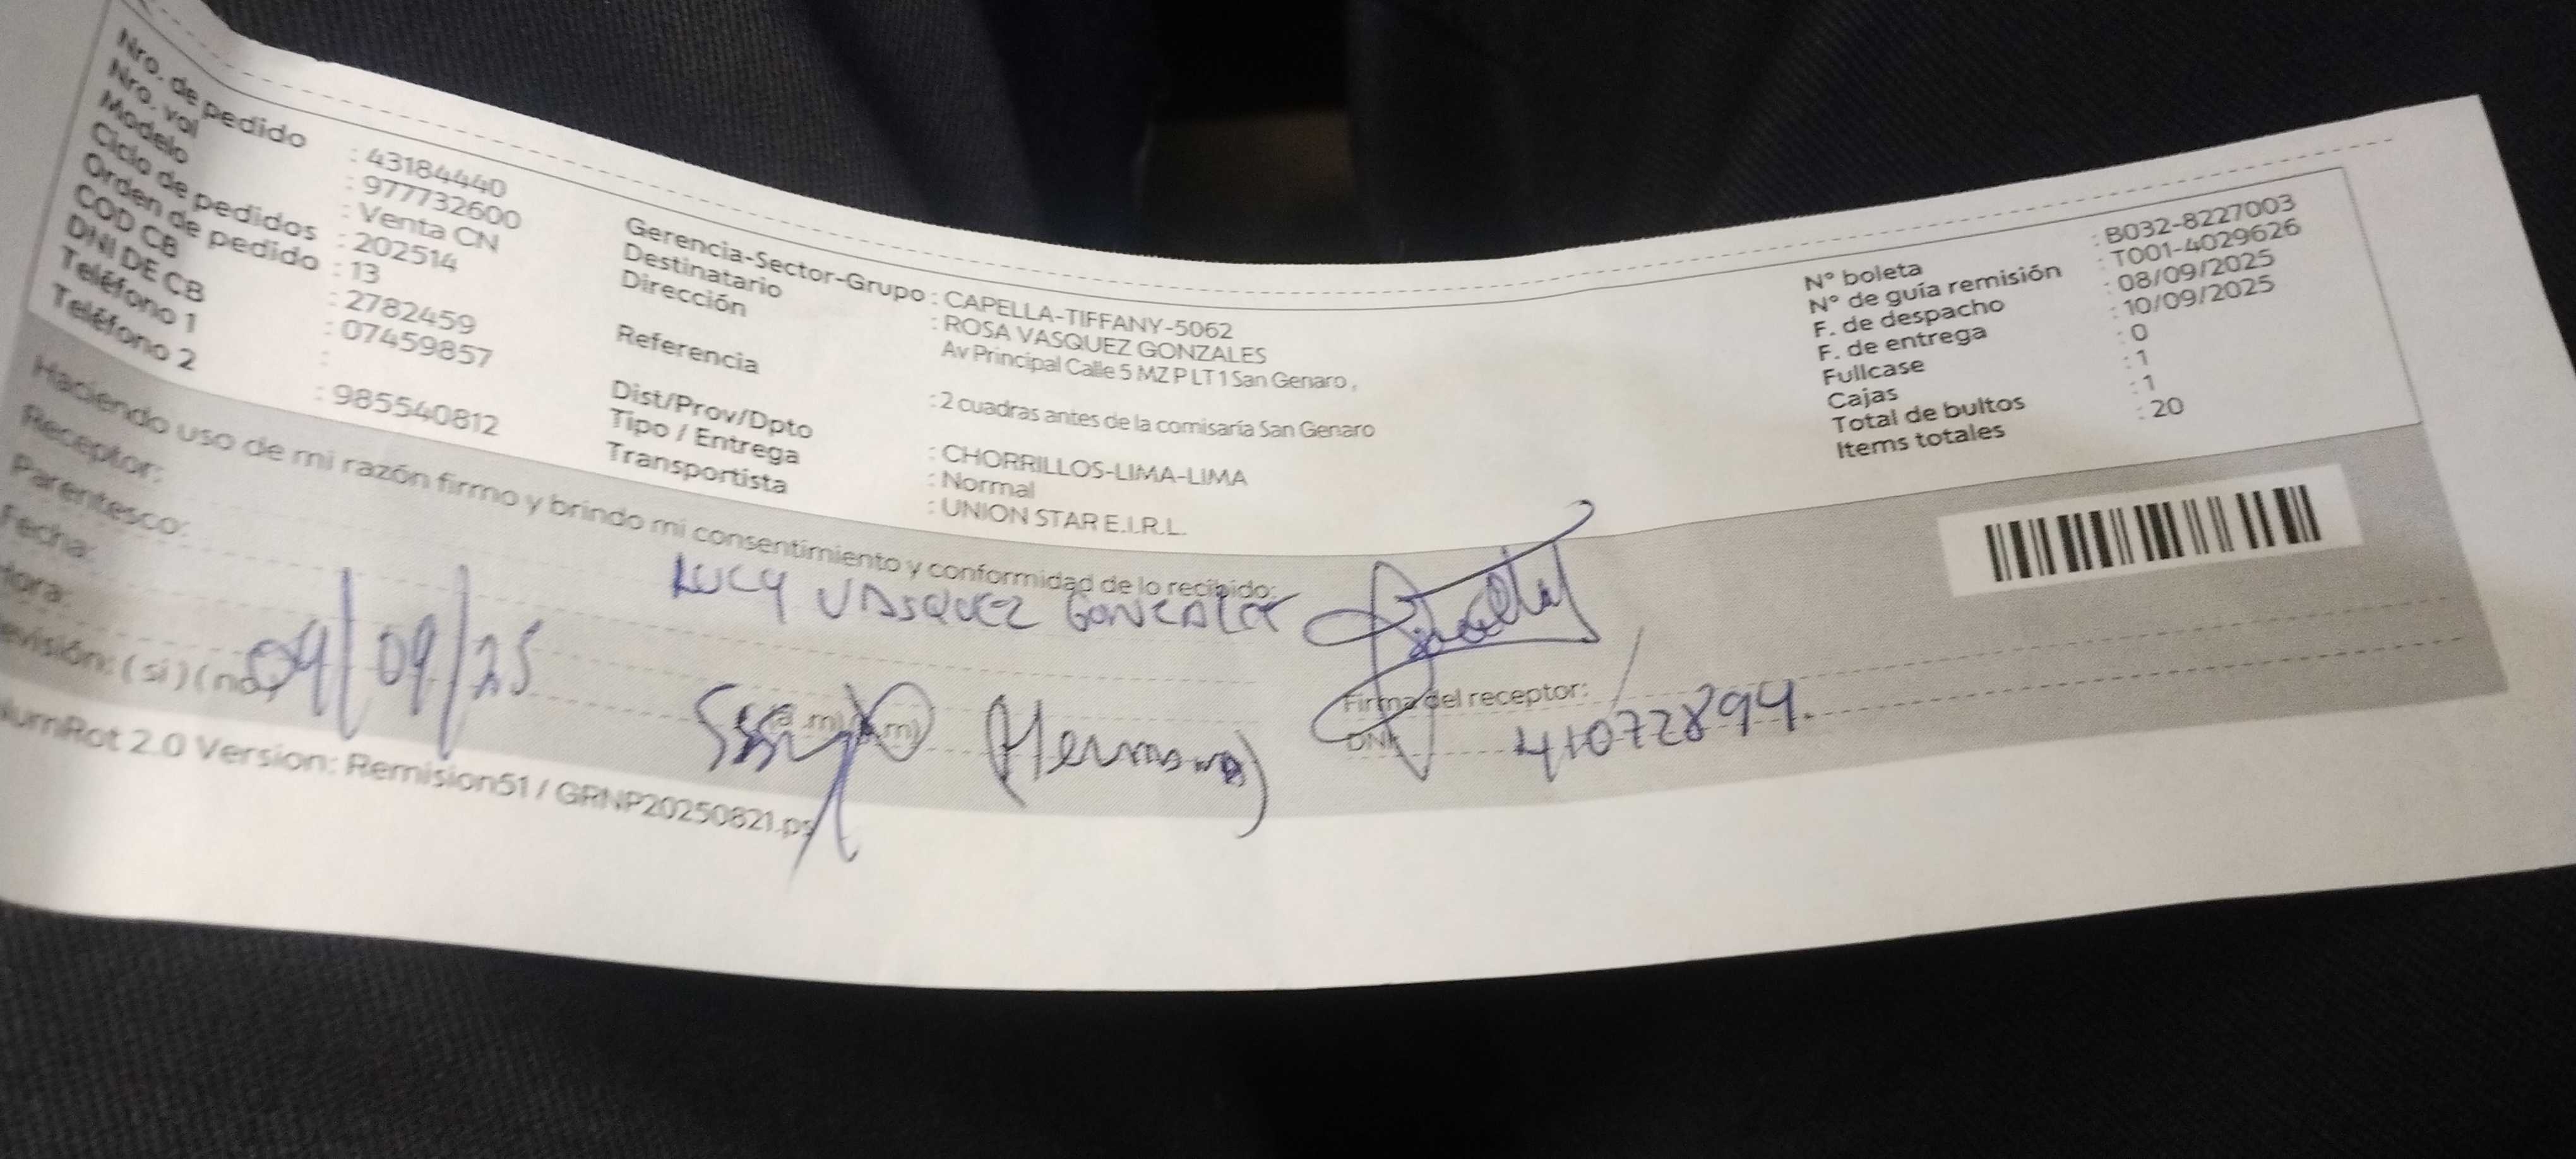 Nro. de pedido : 43184440
Nro. vol : 977732600
Modelo : Venta CN
Ciclo de pedidos : 202514
Orden de pedido : 13
COD CB : 2782459
DNI DE CB : 07459857
Teléfono 1 :
Teléfono 2 : 985540812
Gerencia-Sector-Grupo : CAPELLA-TIFFANY-5062
Destinatario : ROSA VASQUEZ GONZALES
Dirección Av Principal Calle 5 MZ P LT 1 San Genaro ,
Referencia : 2 cuadras antes de la comisaría San Genaro
Dist/Prov/Dpto : CHORRILLOS-LIMA-LIMA
Tipo / Entrega : Normal
Transportista : UNION STAR E.I.R.L.
N° boleta : B032-8227003
N° de guía remisión : T001-4029626
F. de despacho : 08/09/2025
F. de entrega : 10/09/2025
Fullcase : 0
Cajas : 1
Total de bultos : 1
Items totales : 20
Haciendo uso de mi razón firmo y brindo mi consentimiento y conformidad de lo recibido:
Receptor: LUCY VASQUEZ GONZALES
Parentesco: (Hermana)
Fecha: 09/09/25
Hora: (a.m) (p.m)
Revisión: (si) (no)
Firma del receptor:
DNI: 41072894.
umRot 2.0 Version: Remision51 / GRNP20250821.ps